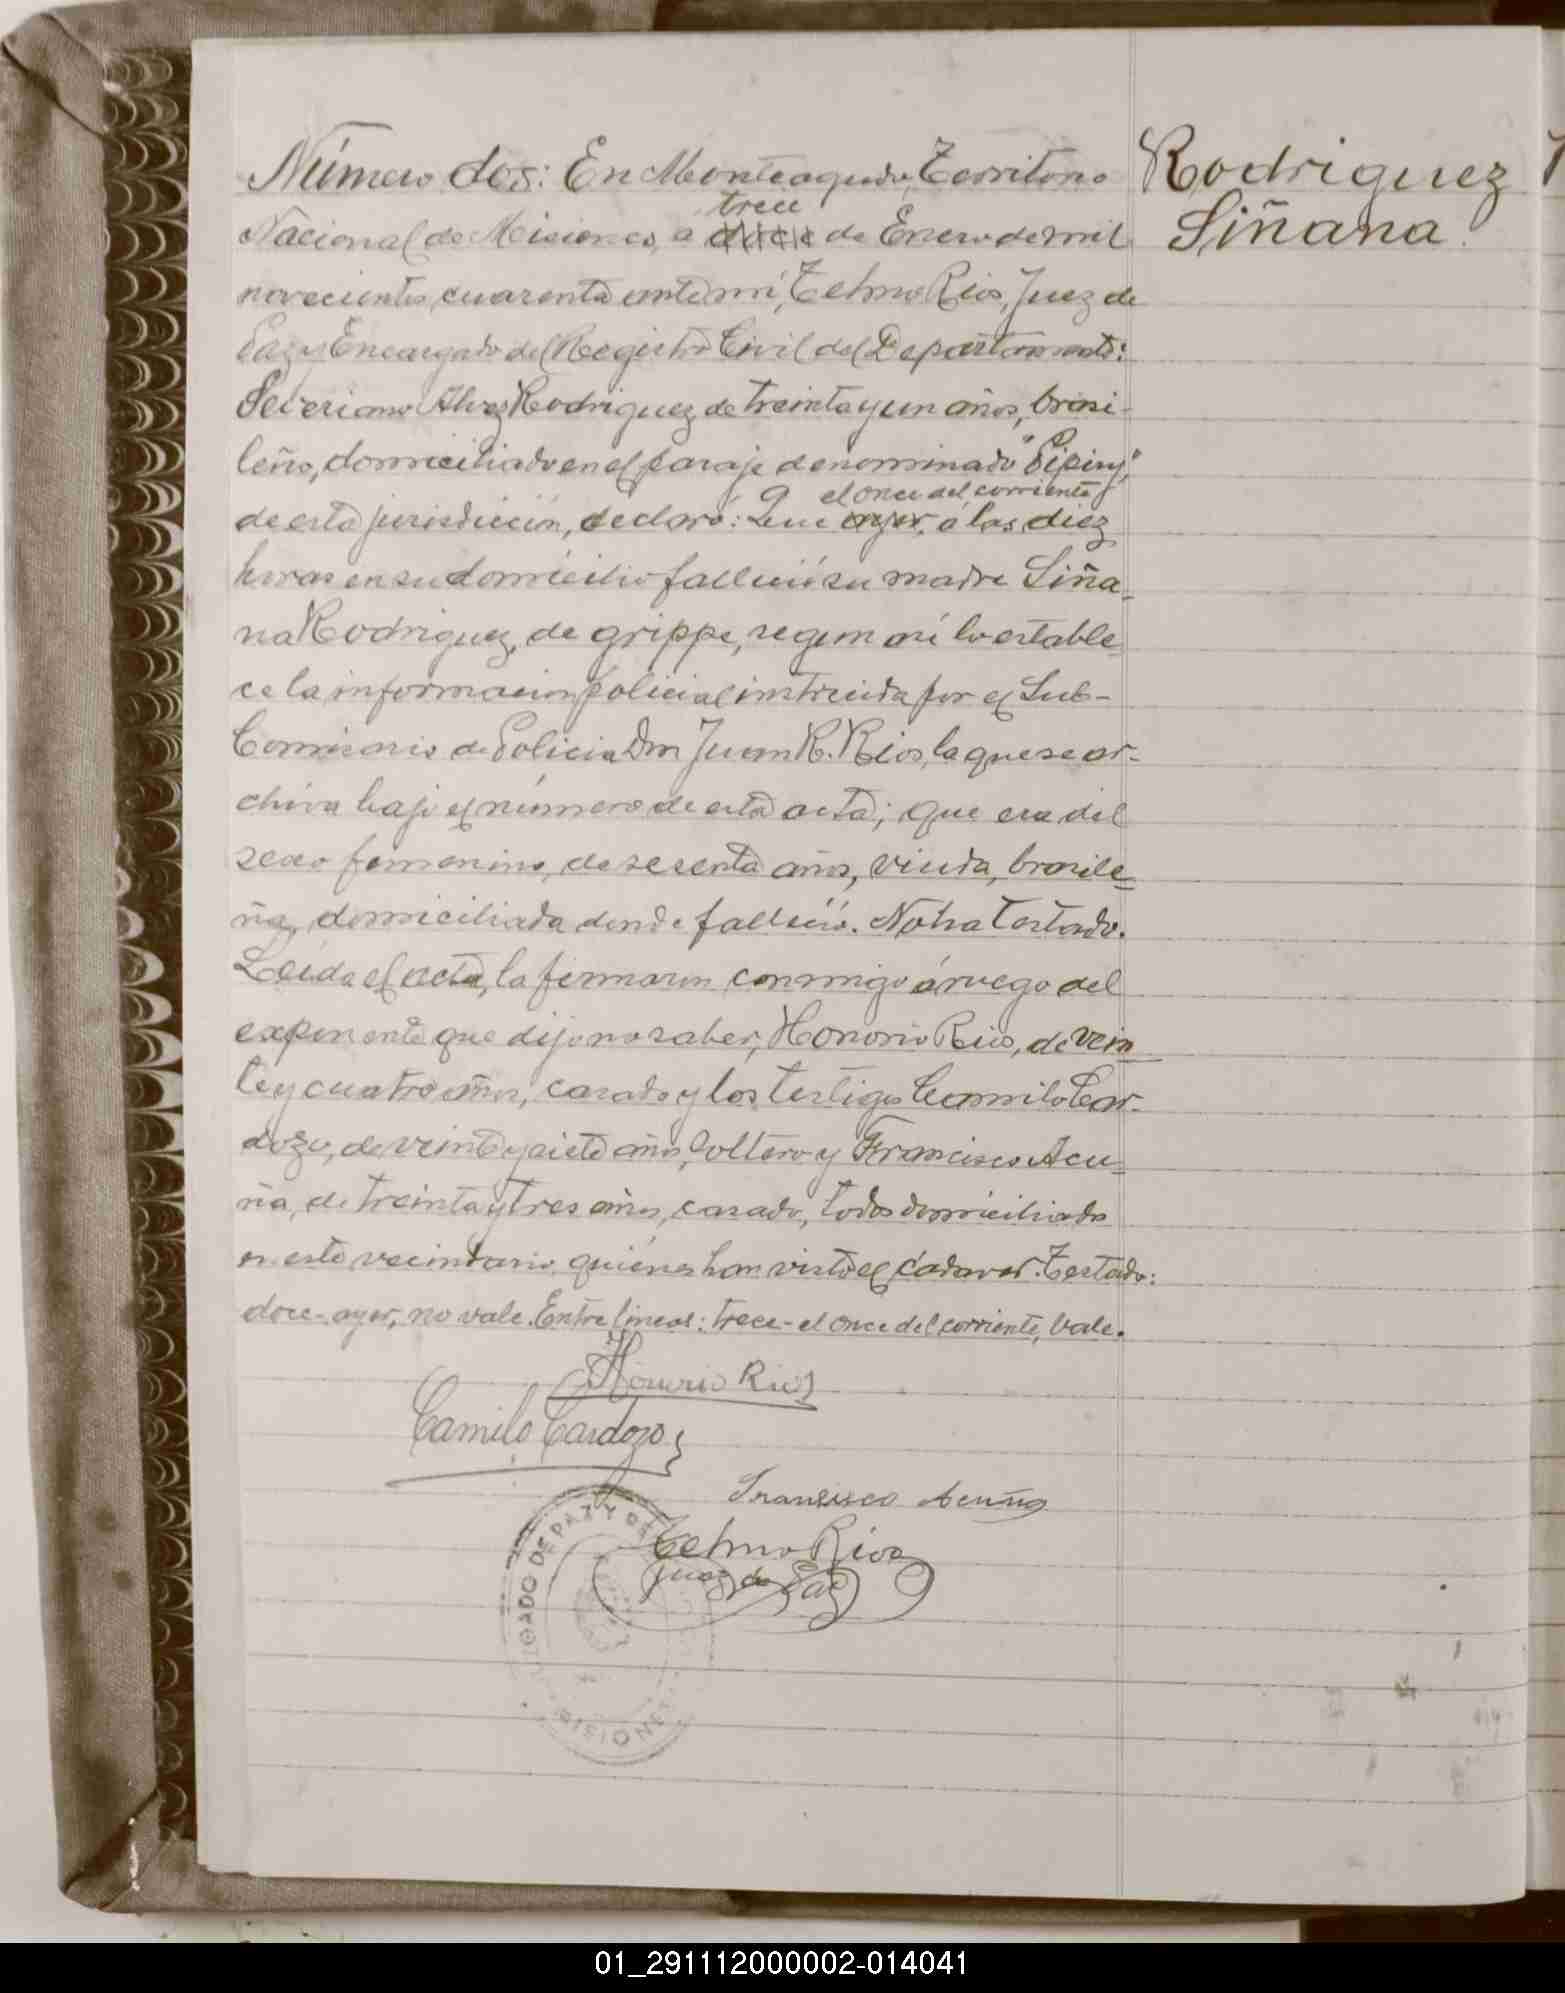 Número dos: En Monteagudo, Territorio
Rodriguez
Siñana.
trece
Nacional de Misiones, a doce de Enero de mil
novecientos cuarenta ante mí, Telmo Rios, Juez de
Paz y Encargado del Registro Civil del Departamento:
Severiano Alves Rodriguez de treinta y un años, brasi-
leño, domiciliado en el paraje denominado "Pepiry",
el once del corriente
de esta jurisdicción, declaró: Que ayer, á las diez
horas en su domicilio falleció su madre Siña-
na Rodriguez, de grippe, segun así lo estable
ce la informacion policial instruida por el Sub-
Comisario de Policia Don Juan R. Rios, la que se ar-
chiva bajo el número de esta acta; que era del
sexo femenino, de sesenta años, viuda, brasile-
ña, domiciliada donde falleció. No ha testado.
Leida el acta, la firmaron conmigo á ruego del
exponente que dijo no saber, Honorio Rios, de vein
te y cuatro años, casado y los testigos Camilo Car-
dozo, de veinte y siete años, soltero y Francisco Acu-
ña, de treinta y tres años, casado, todos domiciliado
en este vecindario quiénes han visto el cádaver. Testado:
doce-ayer, no vale. Entre lineas: trece-el once del corriente, vale.
Honorio Rios
Camilo Cardozo
Francisco Acuña
Telmo Rios
Juez de Paz
JUZGADO DE PAZ Y DE
MISIONES
01_291112000002-014041